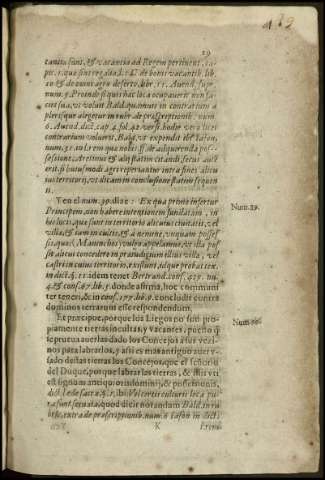 29
tantia sunt, & vacantia ad Regem pertinent, ca-
pit. 1. quæ sint regalia, l. 1. C. de bonis vacantib. lib.
10. & de omni agro deserto, lib. 11. Auend. sup.
num. 5. Proinde si qui hæc loca occupauerit non fa-
ciet sua, vt voluit Bald. quamuis in contrarium à
plerisque alegetur in rubr. de præscriptionib. num.
6. Auend. dict. cap. 4. fol. 42. vers. hodie vera licet
contrarium voluerit Balb. vt expendit
num. 31. in l. rem quæ nobis ff. de adquirenda pos-
sessione. Aretinus & alij statim citandi, secus au
erit, si huiusmodi agri reperiantur intra fines alicu
ius territorij, vt dicam in conclusione statim sequen
ti.
Y en el num. 39. dize: Ex qua primò infertur
Principem, non habere intentionem fundatam, in
his locis, quæ sunt in territorio alicuius ciuitatis, vel
villæ, & sunt inculti, & à nemine, vnquam posses-
si: quos Maurachos vulgò appelamus, & illa pos
se alicui concedere in præiudicium illius villæ, vel
castri in cuius territorio, existunt, id que probat tex.
in dict. §. 1. idem tenet Bertrand. cons. 427. nu.
4. & cons. 67. lib. 5. donde afirma, hoc commun
ter teneri, & in cons. 177. lib. 9. concludit contra
dominos terrarum esse respondendum.
Et præcipuè, porque los Liegos no son pro-
piamente tierras incultas, y vacantes, puesto q̃
se prueua auerlas dado los Concejos à sus vezi-
nos para labrarlos, y assi es mas antiguo auer v-
sado destas tierras los Concejos, que el señorio
del Duque, porque labrar las tierras, & illis vti
est signum antiquioris dominij, & possessionis,
dict. l. si sacras, §. 1. ibi: Veteri culturæ loca pu
ra sunt servata, quod dicit notandum Bald. in ru
bric. extra de præscriptionib. num. 6. Iason in dict.
K
Num. 29.